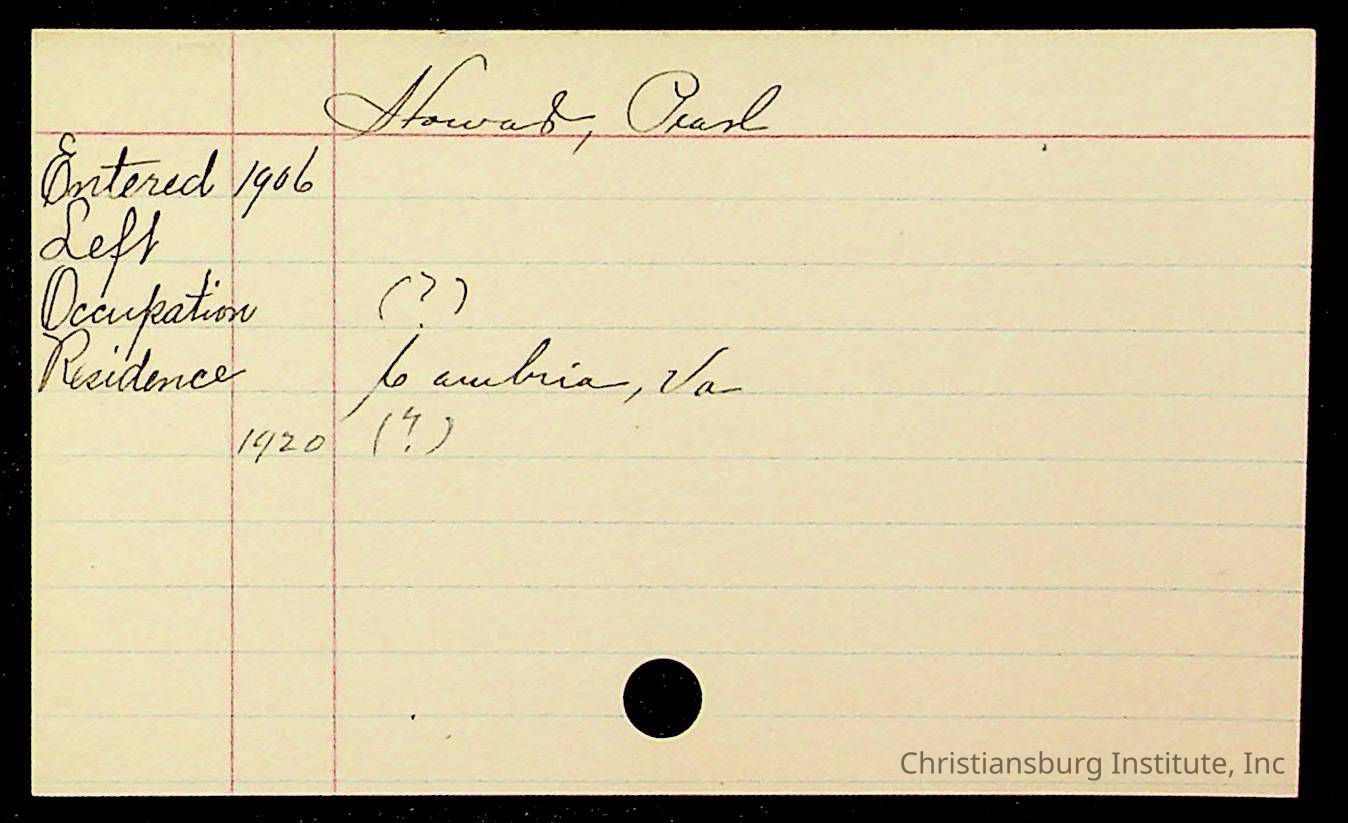 Howard, Pearl
Entered 1906
Left
Occupation (?)
Residence Cambria, Va
1920 (?)
Christiansburg Institute, Inc